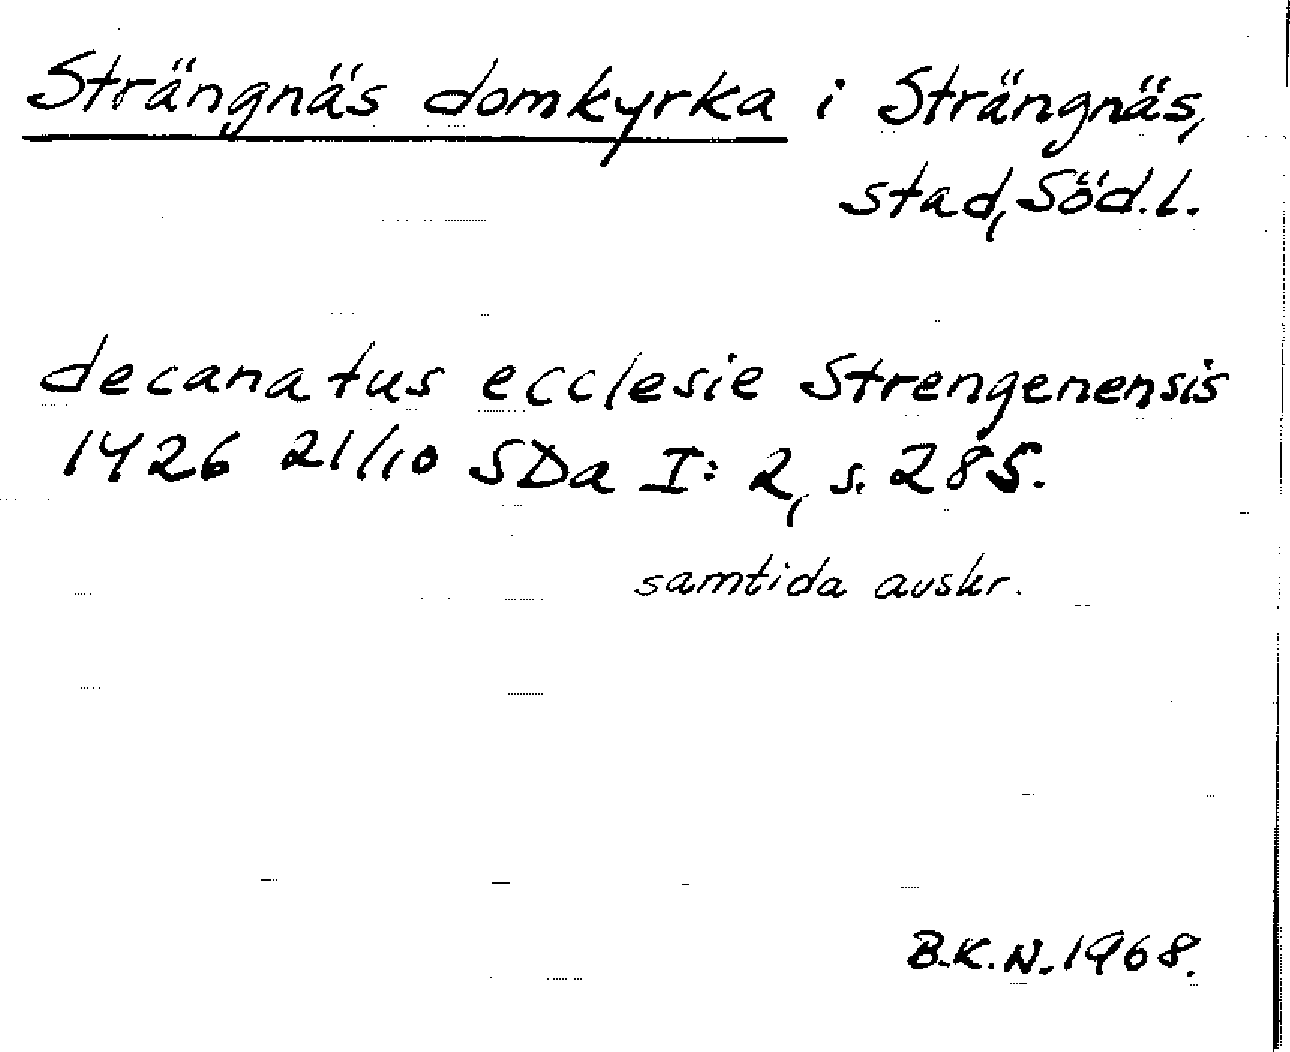 Strängnäs domkyrka i Strängnäs,
stad, Söd.l.
decanatus ecclesie Strengenensis
1426 21/10 SDa I: 2, s. 285.
samtida avskr.
B.K.N. 1968.